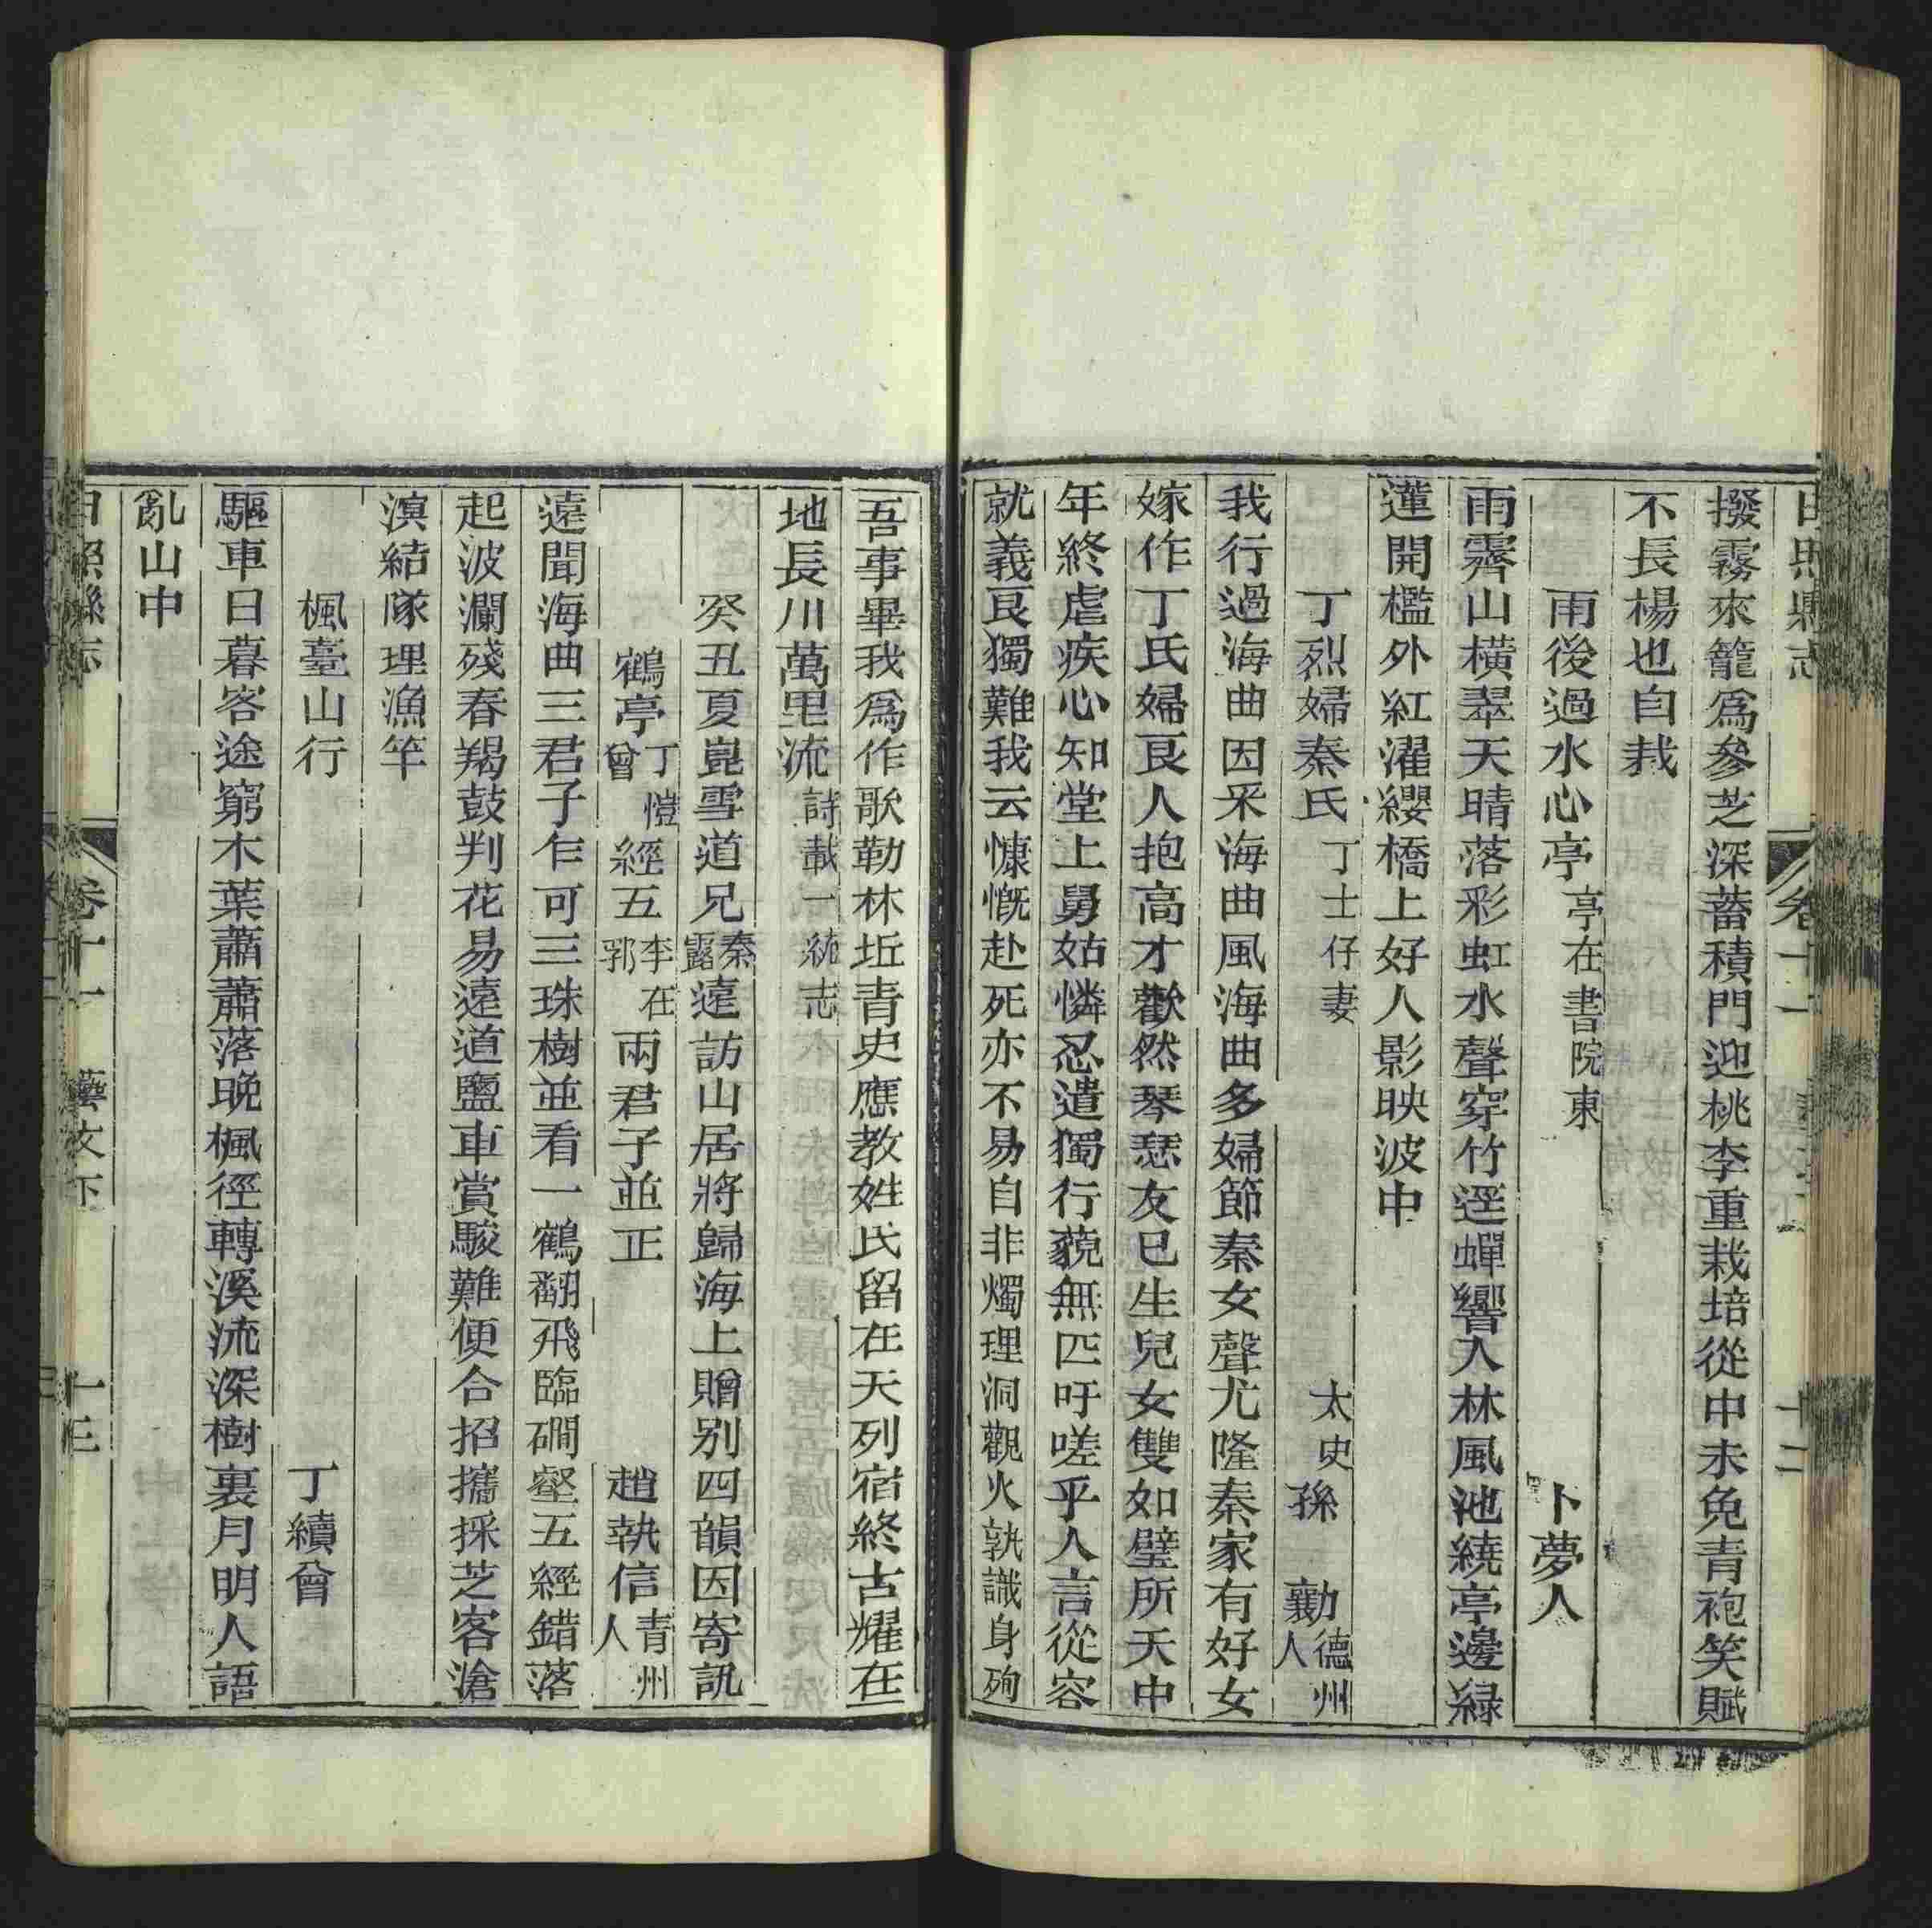 日照縣志 卷十一 十二
撥霧來籠爲參芝深蓄積門迎桃李重栽培從中未免青袍笑賦
不長楊也自栽
雨後過水心亭 亭在書院東 卜夢人
雨霽山橫翠天晴落彩虹水聲穿竹逕蟬響入林風池繞亭邊緑
蓮開檻外紅濯纓橋上好人影映波中
丁烈婦秦氏 丁士仔妻 太史孫勷 德州人
我行過海曲因采海曲風海曲多婦節秦女聲尤隆秦家有好女
嫁作丁氏婦良人抱高才歡然琴瑟友已生兒女雙如璧所天中
年終虐疾心知堂上舅姑憐忍遣獨行藐無匹吁嗟乎人言從容
就義良獨難我云慷慨赴死亦不易自非燭理洞觀火孰識身殉
吾事畢我爲作歌勒林坵青史應教姓氏留在天列宿終古耀在
地長川萬里流 詩載一統志
癸丑夏崑雪道兄 秦露 遠訪山居將歸海上贈别四韻因寄訊
鶴亭 丁愷曾 經五 李在郛 兩君子並正 趙執信 青州人
遠聞海曲三君子乍可三珠樹並看一鶴翻飛臨磵壑五經錯落
起波瀾殘春羯鼓判花易遠道鹽車賞駿難便合招攜採芝客滄
溟結隊理漁竿
楓臺山行 丁續曾
驅車日暮客途窮木葉蕭蕭落晚楓徑轉溪流深樹裏月明人語
亂山中
日照縣志 卷十一 藝文下 十三